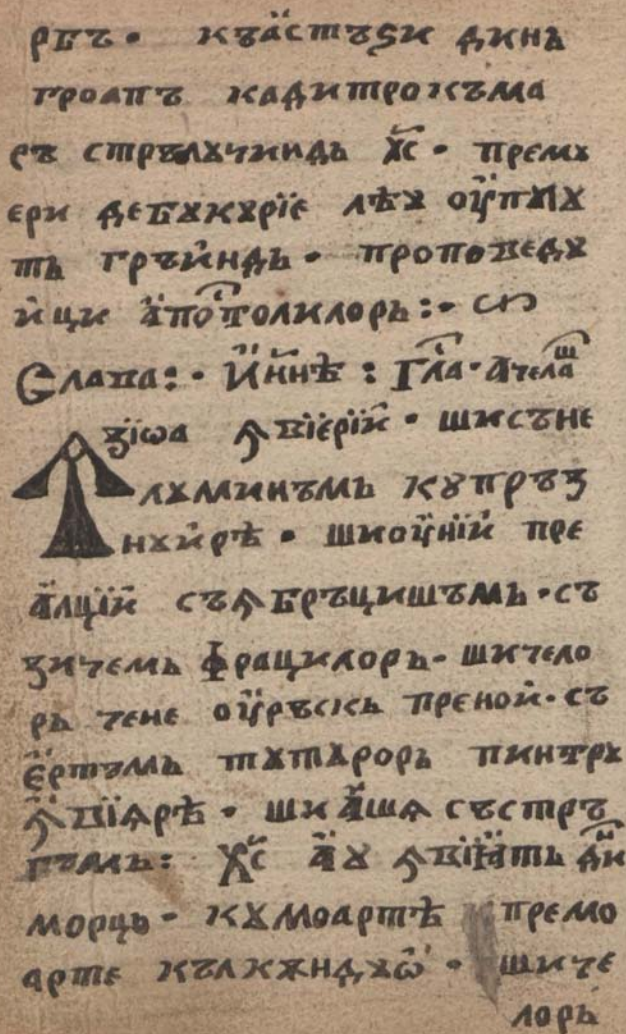 рбъ· къа҆стъѕи дина
гроапъ кадитрокъма
ръ стрълꙋчиндь х҃с· премꙋ
ери дебꙋкꙋрїе лѣꙋ оу҆плꙋ
ть гръи҆ндь· проповедꙋ
и҆ци а҆по҇столилорь:·
Слава:· И҆ н҃нѣ : Гл҃а· ачелаш
Ꙁїѡа ꙟвїерїй· шисъне
лꙋминъмь купръꙁ
нꙋи҆рѣ· шиоу҆нїй пре
а҆лцїй съꙟбръцишъмь·съ
ꙁичемь фрацилорь· шичело
рь чене оу҆ръскь преной·съ
е҆ртъмь тꙋтꙋрорь пинтрꙋ
ꙟвїꙗрѣ· шиа҆шѧ състръ
гъмь: Х҃с а҆ꙋ ꙟвїи҆ть дин
морць· кꙋмоартѣ премо
арте кълкѫндꙋѡ· шиче
лорь